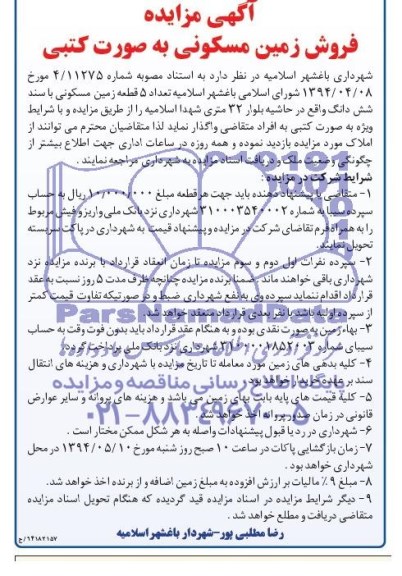 آگهی مزایده
فروش زمین مسکونی به صورت کتبی
شهرداری باغشهر اسلامیه در نظر دارد به استناد مصوبه شماره ۴/۱۱۲۷۵ مورخ
۱۳۹۴/۰۴/۰۸ شورای اسلامی باغشهر اسلامیه تعداد ۵ قطعه زمین مسکونی با سند
شش دانگ واقع در حاشیه بلوار ۳۲ متری شهدا اسلامیه را از طریق مزایده و با شرایط
ویژه به صورت کتبی به افراد متقاضی واگذار نماید لذا متقاضیان محترم می توانند از
املاک مورد مزایده بازدید نموده و همه روزه در ساعات اداری جهت اطلاع بیشتر از
چگونگی وضعیت ملک و دریافت اسناد مزایده به شهرداری مراجعه نمایند .
شرایط شرکت در مزایده :
۱- متقاضی یا پیشنهاد دهنده باید جهت هر قطعه مبلغ ۱۰/۰۰۰/۰۰۰ ریال به حساب
سپرده سیبا به شماره ۳۱۰۰۰۰۳۵۴۰۰۰۲ شهرداری نزد بانک ملی واریز و فیش مربوط
را به همراه فرم تقاضای شرکت در مزایده و پیشنهاد قیمت به شهرداری در پاکت سربسته
تحویل نمایند.
۲- سپرده نفرات اول دوم و سوم مزایده تا زمان انعقاد قرارداد با برنده مزایده نزد
شهرداری باقی خواهند ماند . ضمنا برنده مزایده چنانچه ظرف مدت ۵ روز نسبت به عقد
قرارداد اقدام ننماید سپرده وی به نفع شهرداری ضبط و در صورتیکه تفاوت قیمت کمتر
از سپرده اولیه باشد با نفر بعدی قرارداد منعقد خواهد شد.
۳- بهاء زمین به صورت نقدی بوده و به هنگام عقد قرارداد باید بدون فوت وقت به حساب
سیبای شماره ۳۱۰۰۰۰۱۸۵۲۰۰۳ شهرداری نزد بانک ملی پرداخت گردد.
۴- کلیه بدهی های زمین مورد معامله تا تاریخ مزایده با شهرداری و هزینه های انتقال
سند بر عهده خریدار خواهد بود.
۵- کلیه قیمت های پایه بابت بهای زمین می باشد و هزینه های پروانه و سایر عوارض
قانونی در زمان صدور پروانه اخذ خواهد شد .
۶- شهرداری در رد یا قبول پیشنهادات واصله به هر شکل ممکن مختار است .
۷- زمان بازگشایی پاکات در ساعت ۱۰ صبح روز شنبه مورخ ۱۳۹۴/۰۵/۱۰ در محل
شهرداری خواهد بود .
۸- مبلغ ۹٪ مالیات بر ارزش افزوده به مبلغ زمین اضافه و از برنده اخذ خواهد شد.
۹- دیگر شرایط مزایده در اسناد مزایده قید گردیده که هنگام تحویل اسناد مزایده
متقاضی دریافت و مطلع خواهد شد .
رضا مطلبی پور-شهردار باغشهر اسلامیه
۱۴۱۸۲۱۵۷/ع